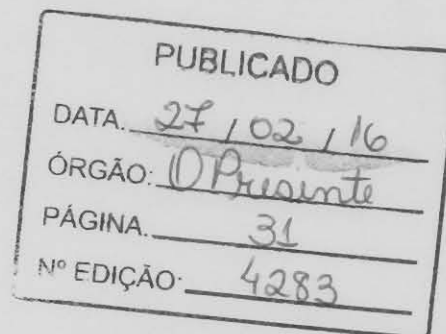 PUBLICADO
DATA. 27 / 02 / 16
ÓRGÃO: O Presente
PÁGINA. 31
Nº EDIÇÃO: 4283